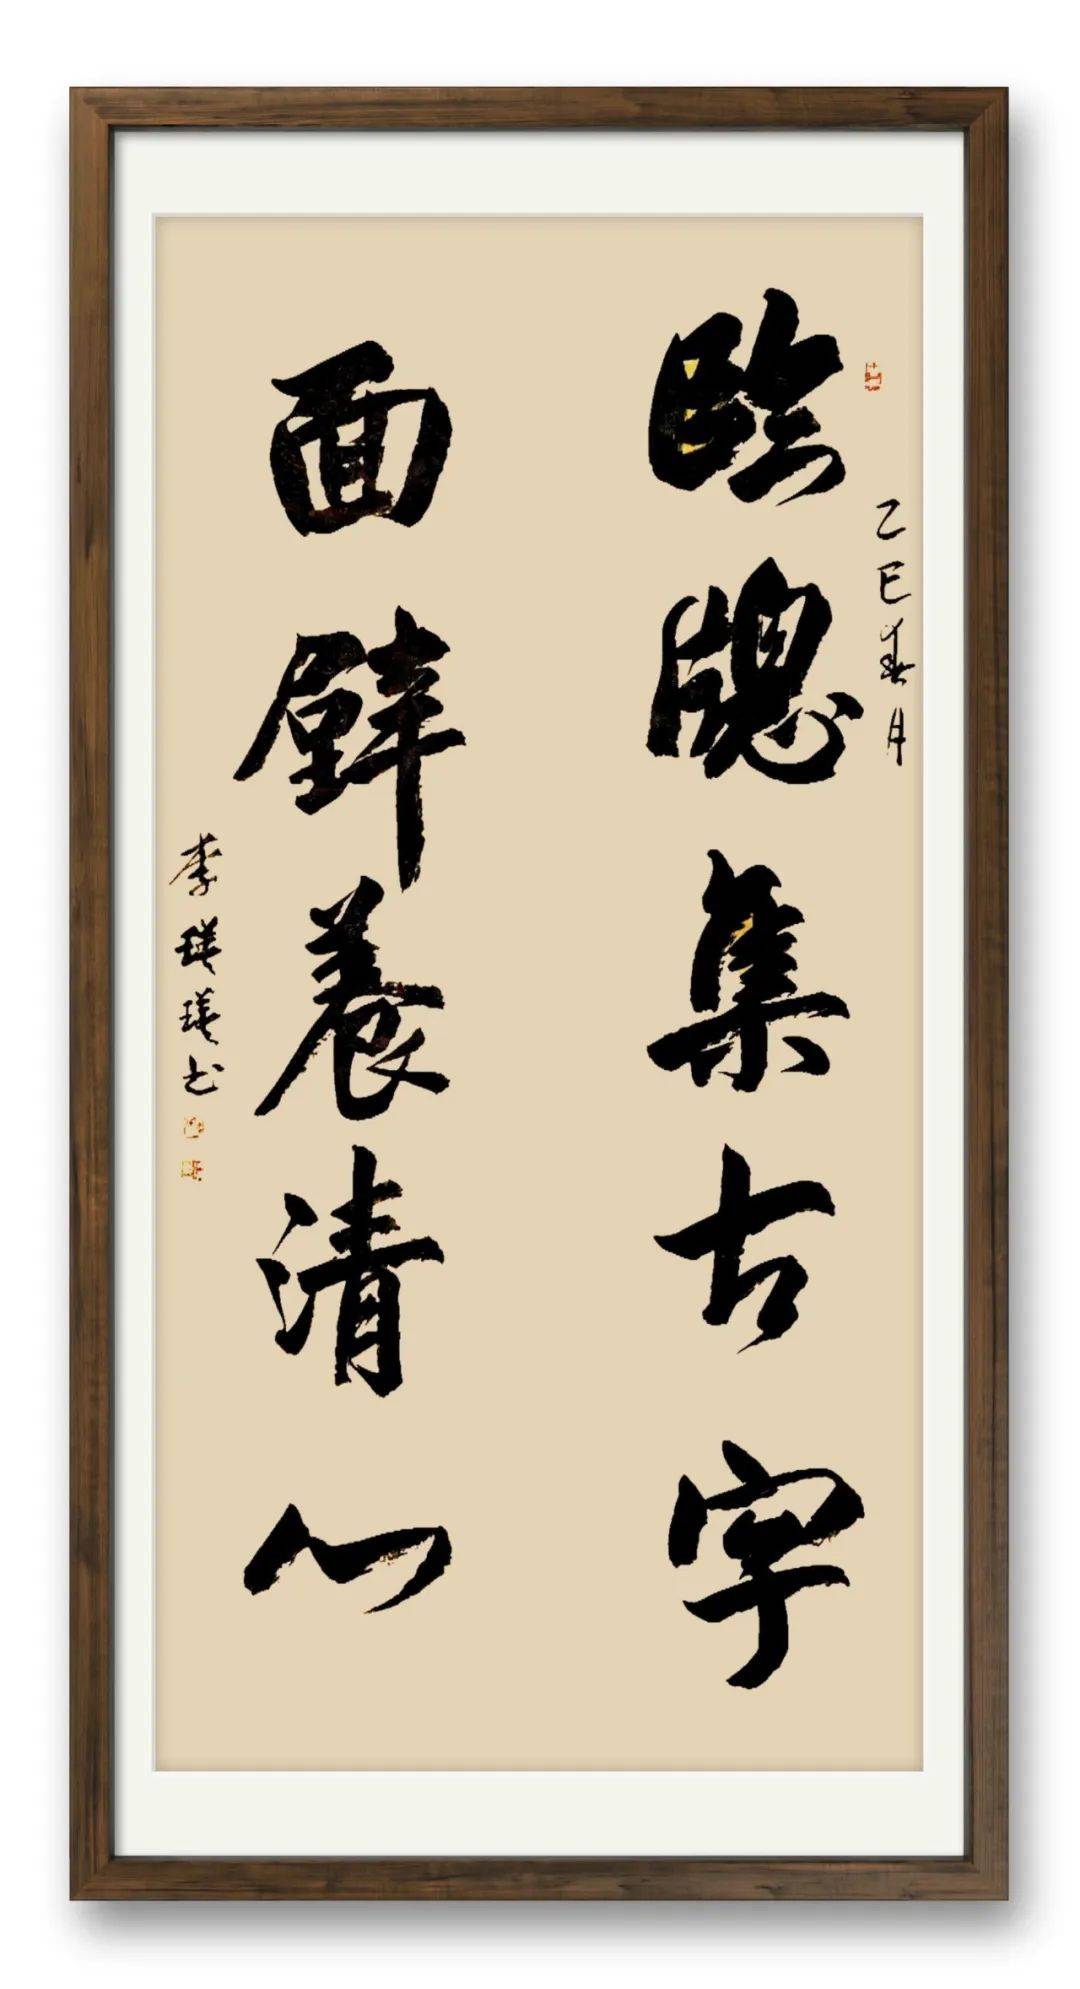 乙巳春月
臨牎集古字
面壁養清心
李瑛瑛书